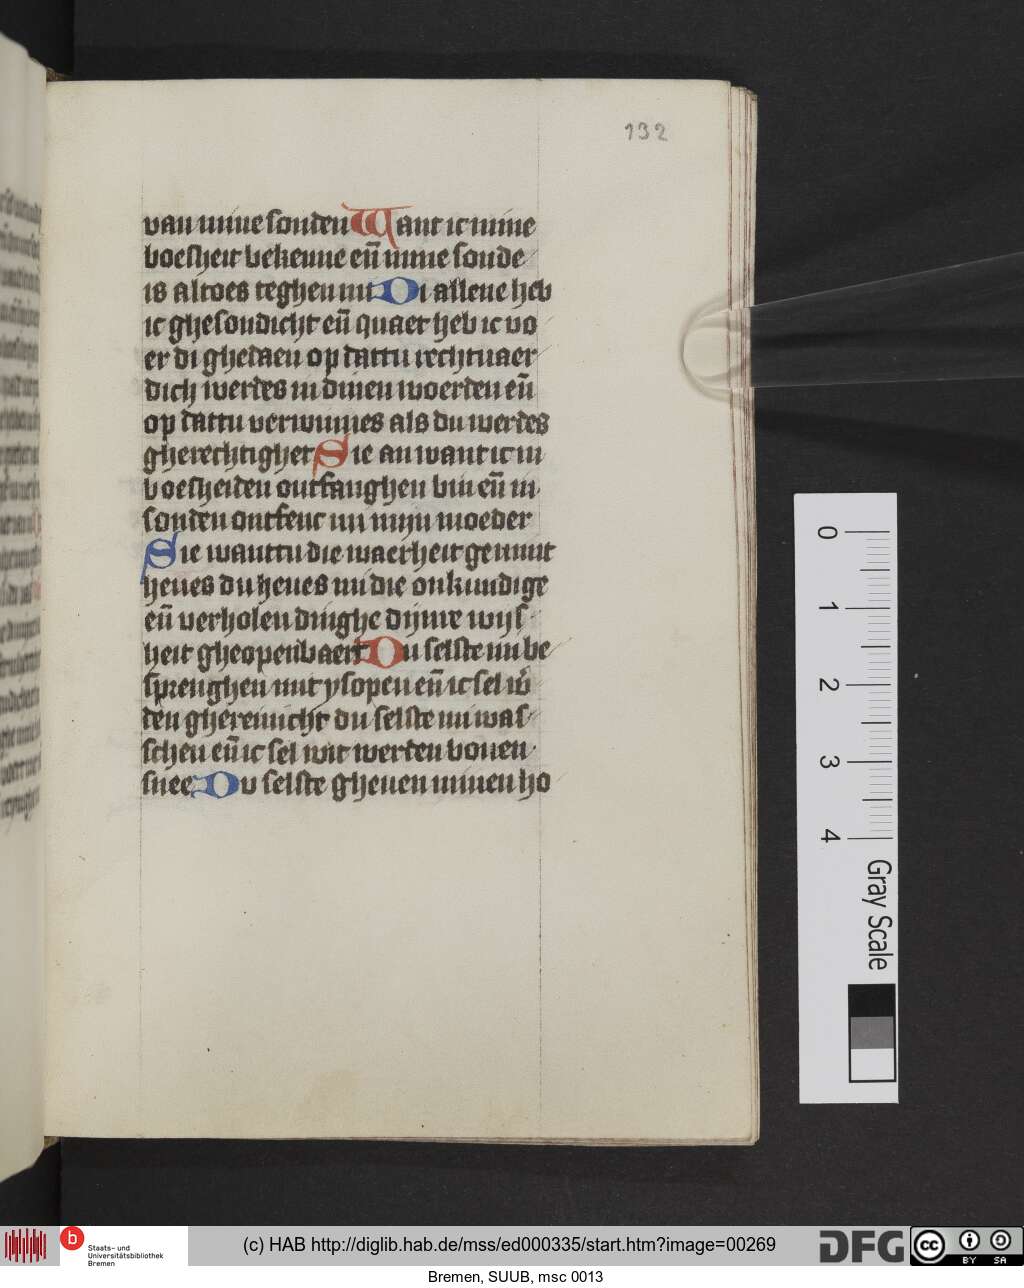 132
van mine sonden Want ic mine
boesheit bekenne eñ mine sonde
is altoes teghen mi Di allene heb
ic ghesondicht eñ quaet heb ic vo
er di ghedaen op dattu rechtuaer
dich werdes in dinen woerden eñ
op dattu verwinnes als du werdes
gherechtighet Sie an want ic in
boesheiden ontfanghen bin eñ in
sonden ontfenc mi mijn moeder
Sie wanttu die waerheit gemint
heues du heues mi die onkundige
eñ verholen dinghe dijnre wijs
heit gheopenbaert Du selste mi be
sprenghen mit ysopen eñ ic sel w̉
den ghereinicht du selste mi was
schen eñ ic sel wit werden bouen
snee Du selste gheuen minen ho
0
1
2
3
4
Gray Scale
b
Staats- und
Universitätsbibliothek
Bremen
(c) HAB http://diglib.hab.de/mss/ed000335/start.htm?image=00269
DFG
cc
BY SA
Bremen, SUUB, msc 0013